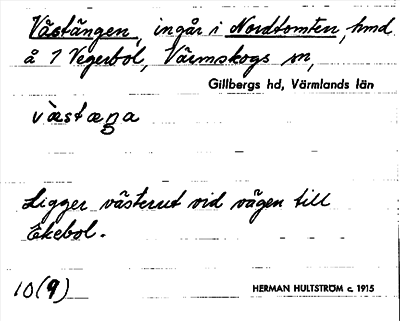 Västängen, ingår i Nordtomten, hmd
å 7 Vegerbol, Värmskogs sn,
Gillbergs hd, Värmlands län
vàstæŋa
Ligger västerut vid vägen till
Ekebol.
10(9)
HERMAN HULTSTRÖM c. 1915